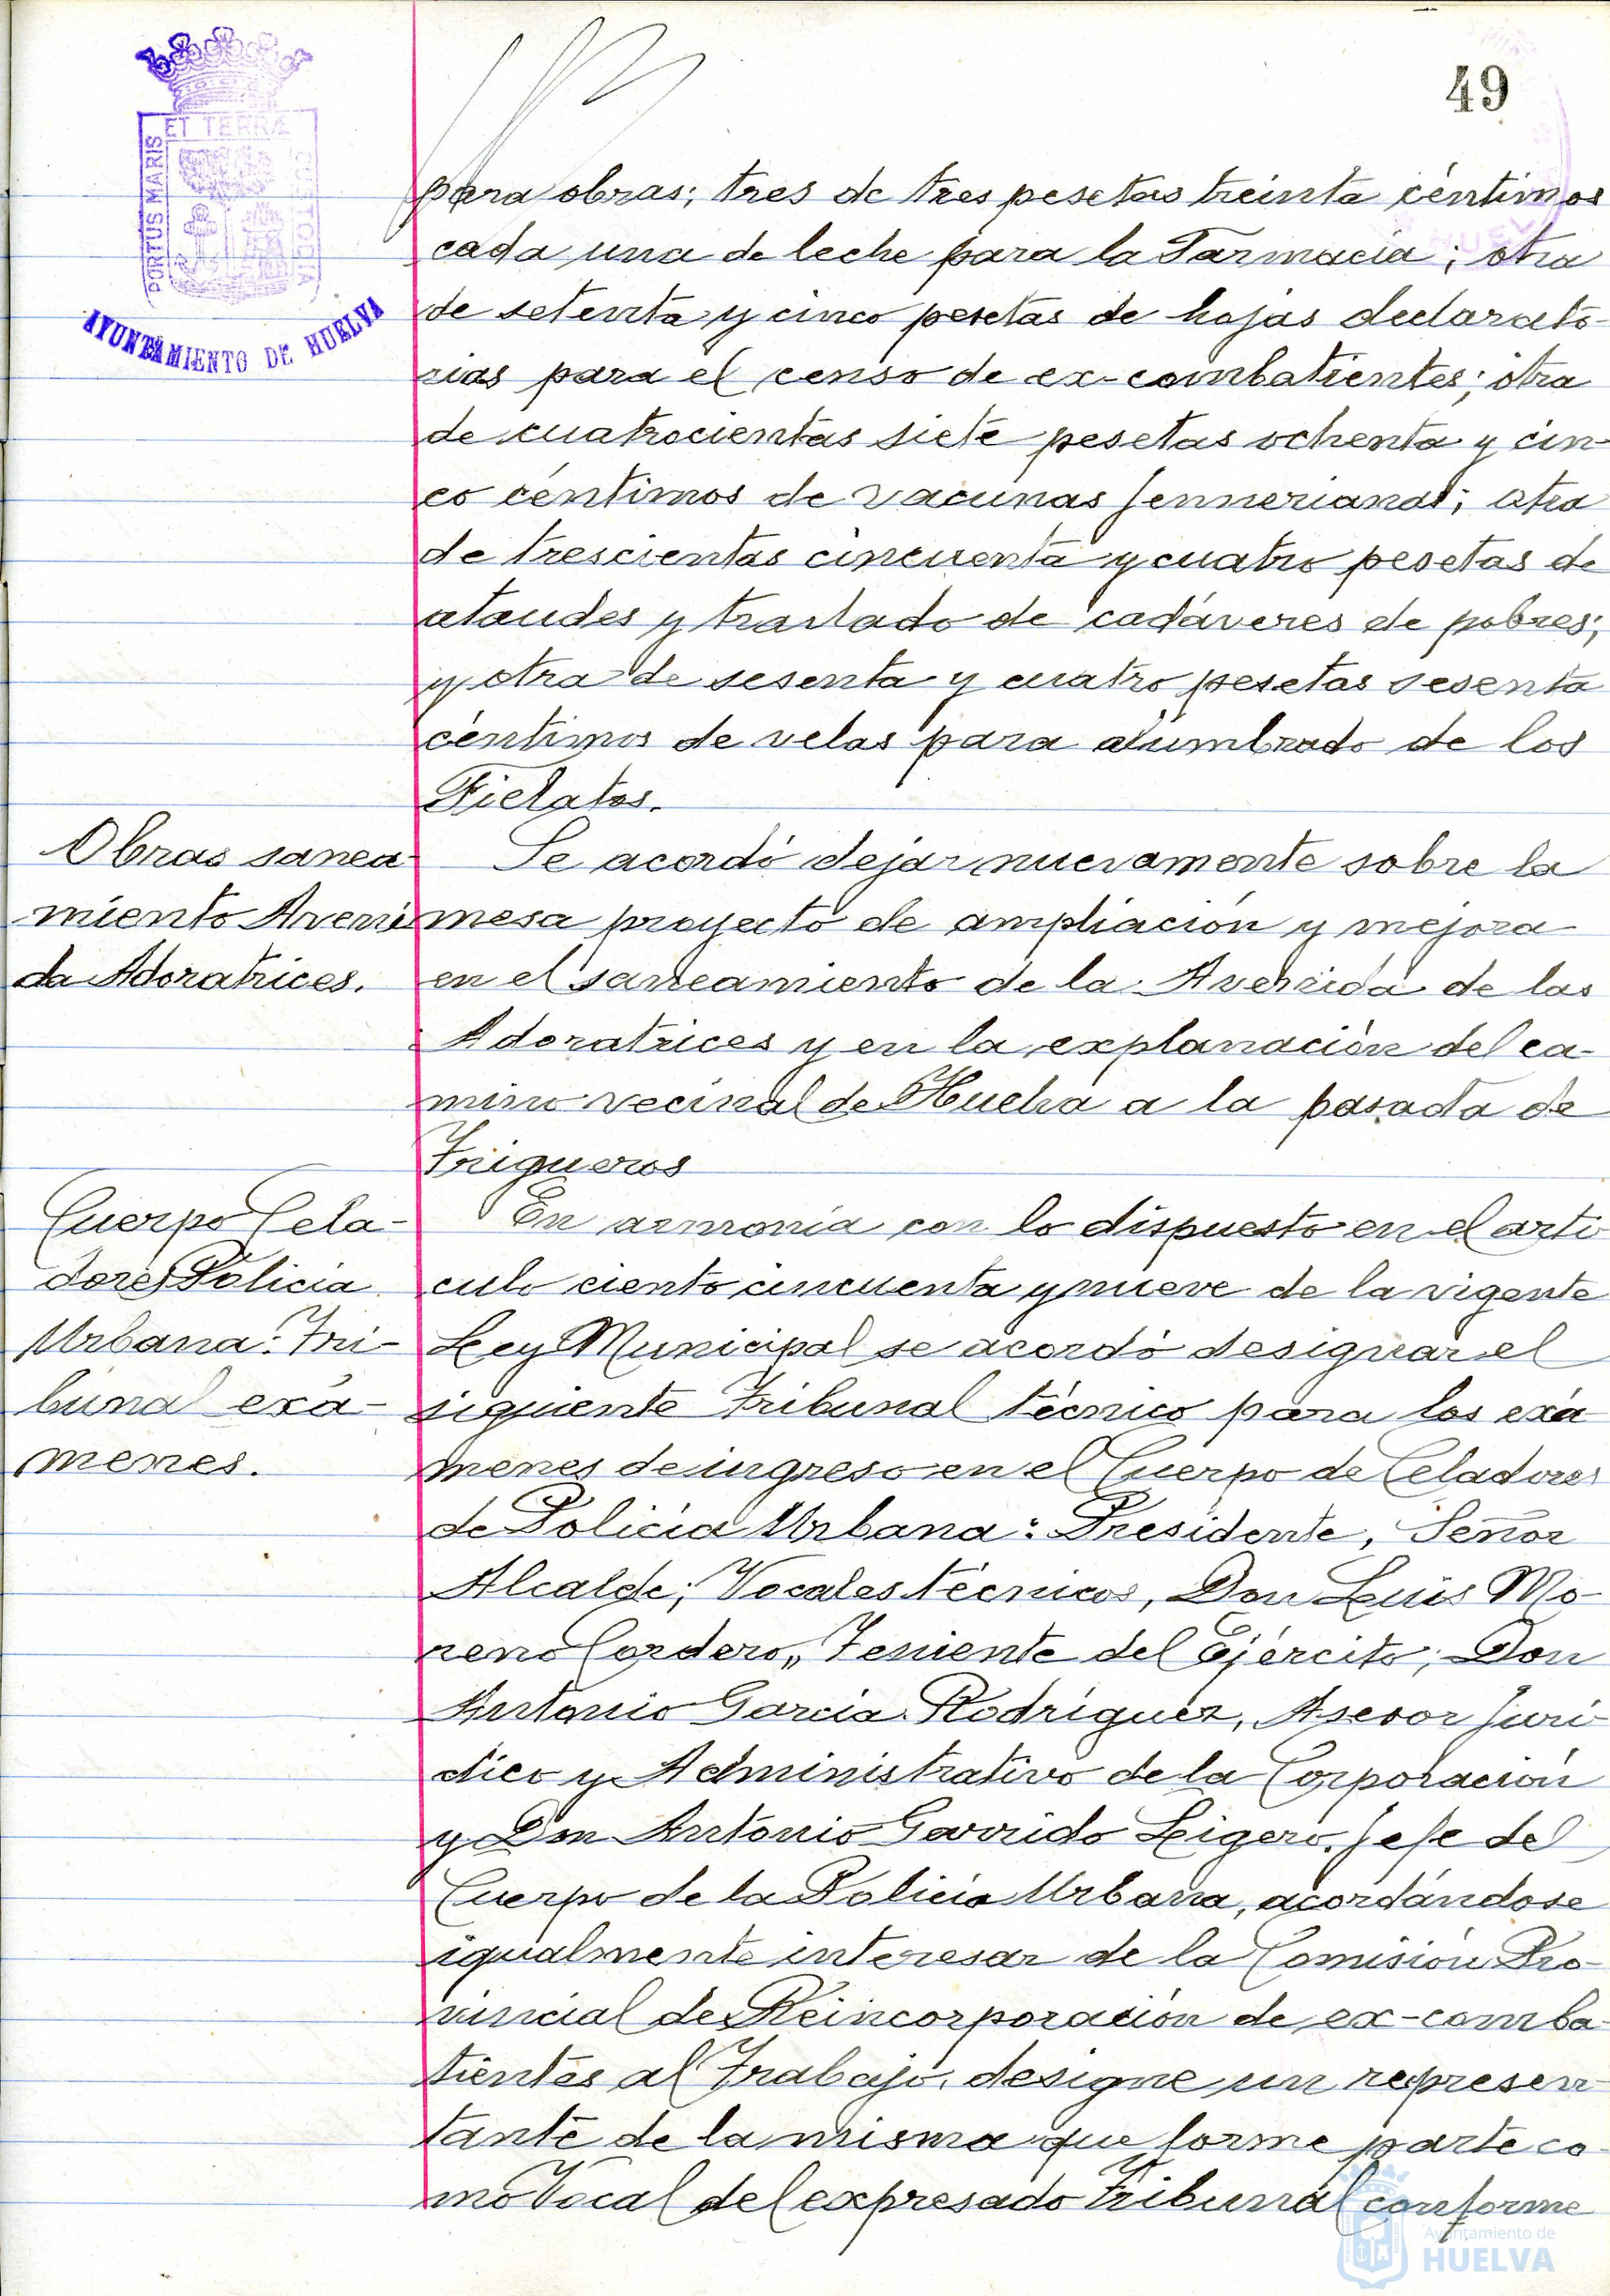 49
ET TERRÆ
PORTUS MARIS
CUSTODIA
AYUNTAMIENTO DE HUELVA
para obras; tres de tres pesetas treinta céntimos
cada una de leche para la Farmacia; otra
de setenta y cinco pesetas de hojas declarato-
rias para el censo de ex-combatientes; otra
de cuatrocientas siete pesetas ochenta y cin-
co céntimos de vacunas Jennerianas; otra
de trescientas cincuenta y cuatro pesetas de
ataudes y traslado de cadáveres de pobres;
y otra de sesenta y cuatro pesetas sesenta
céntimos de velas para alumbrado de los
Fielatos.
Obras sanea-
miento Aveni
da Adoratrices.
Se acordó dejar nuevamente sobre la
mesa proyecto de ampliación y mejora
en el saneamiento de la Avenida de las
Adoratrices y en la explanación del ca-
mino vecinal de Huelva a la pasada de
Trigueros
Cuerpo Cela-
dores Policia
Urbana: Tri-
bunal exá-
menes.
En armonía con lo dispuesto en el arti
culo ciento cincuenta y nueve de la vigente
Ley Municipal se acordó designar el
siguiente Tribunal técnico para los exá
menes de ingreso en el Cuerpo de Celadores
de Policía Urbana: Presidente, Señor
Alcalde; Vocales técnicos, Don Luis Mo-
reno Cordero,, Teniente del Ejército; Don
Antonio García Rodríguez, Asesor Juri-
dico y Administrativo de la Corporación
y Don Antonio Garrido Ligero, Jefe del
Cuerpo de la Policia Urbana, acordándose
igualmente interesar de la Comisión Pro-
vincial de Reincorporación de ex-comba-
tientes al Trabajo, designe un represen-
tante de la misma que forme parte co-
mo Vocal del expresado Tribunal conforme
Ayuntamiento de
HUELVA